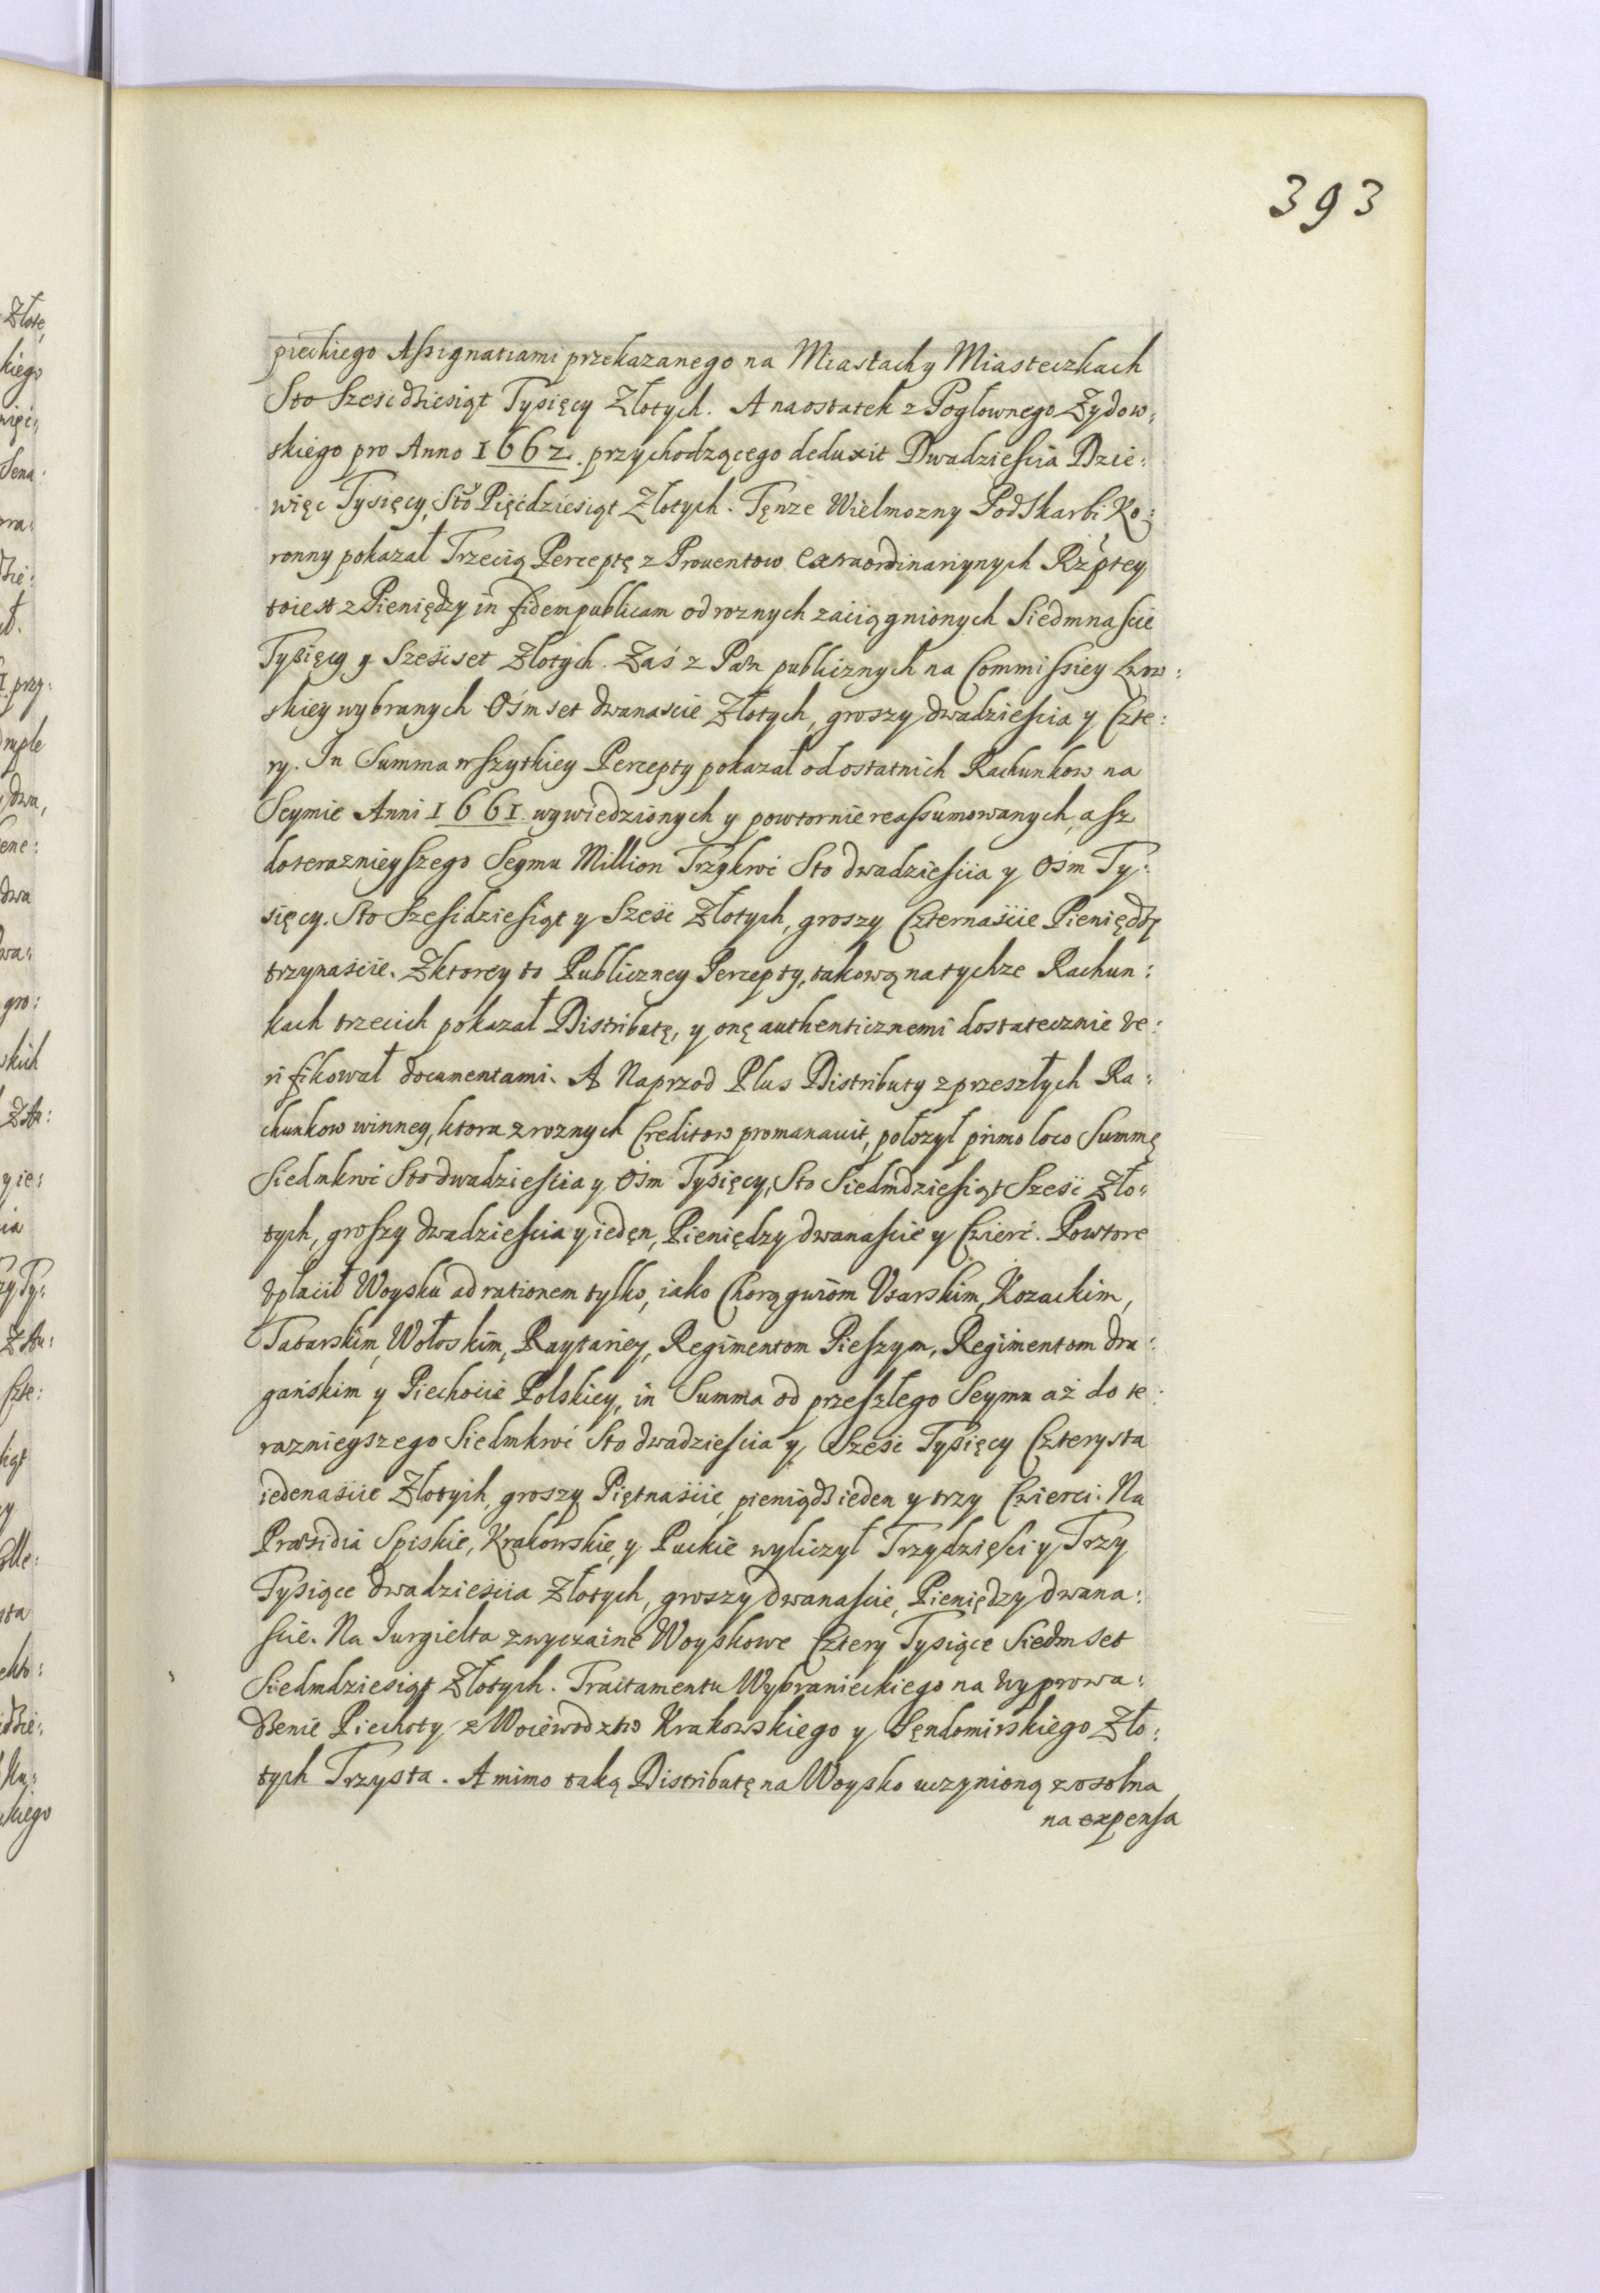 393
pieckiego Assignatiami przekazanego na Miastach y Miasteczkach
Sto Sześćdziesiąt Tysięcy Złotych. A na ostatek z Pogłownego Zydow:
skiego pro Anno 1662. przychodzącego deduxit Dwadzieścia Dzie:
więc Tysięcy, Sto Pięćdziesiąt Złotych. Tęnze Wielmozny PodSkarbi Ko:
ronny pokazał Trzecią Perceptę z Prouentow extraordinariynych Rzptey
toiest z Pieniędzy in fidem publicam od roznych zaciągnionych Siedmnaście
Tysięcy y Sześćset Złotych. Zaś z Paw publicznych na Commissiey Lwow:
skiey wybranych Ośmset dwanaście Złotych, groszy dwadzieścia y Czte:
ry. In Summa wszytkiey Percepty pokazał od ostatnich Rachunkow na
Seymie Anni 1661. wywiedzionych y powtornie reassumowanych, asz
do teraznieyszego Seymu Million Trzykroć Sto dwadzieścia y Ośm Ty:
sięcy. Sto Sześćdziesiąt y Sześć Złotych, groszy Czternaście Pieniędzy
trzynaście. Z ktorey to Publiczney Percepty, takową na tychze Rachun:
kach trzecich pokazał Distributę, y onę authenticznemi dostatecznie ve:
rifikował documentami. A Naprzod Plus Distributy z przeszłych Ra:
chunkow winney, ktora z roznych Creditow promanauit, położył primo loco Summę
Siedmkroć Sto dwadzieścia y Ośm Tysięcy, Sto Siedmdziesiąt Sześć Zło:
tych, groszy dwadzieścia y iedęn, Pieniędzy dwanaście y Cwierć. Powtore
Vpłacił Woysku ad rationem tylko, iako Chorągwiom Vsarskim, Kozackim,
Tatarskim, Wołoskim, Raytariey, Regimentom Pieszym, Regimentom dra:
gańskim y Piechocie Polskiey, in Summa od przeszłego Seymu aż do te:
raznieyszego Siedmkroć Sto dwadzieścia y Sześć Tysięcy Czterysta
iedenaście Złotych, groszy Piętnaście, pieniądz ieden y trzy Cwierci. Na
Præsidia Spiskie, Krakowskie, y Puckie wyliczył Trzydzięści y Trzy
Tysiące dwadzieścia Złotych, groszy dwanaście, Pieniędzy dwana:
ście. Na Iurgielta zwyczaine Woyskowe Cztery Tysiące Siedmset
Siedmdziesiąt Złotych. Traitamentu Wybranieckiego na wyprowa:
dzenie Piechoty z Woiewodztw Krakowskiego y Sęndomirskiego Zło:
tych Trzysta. A mimo taką Distributę na Woysko uczynioną zosobna
na expensa